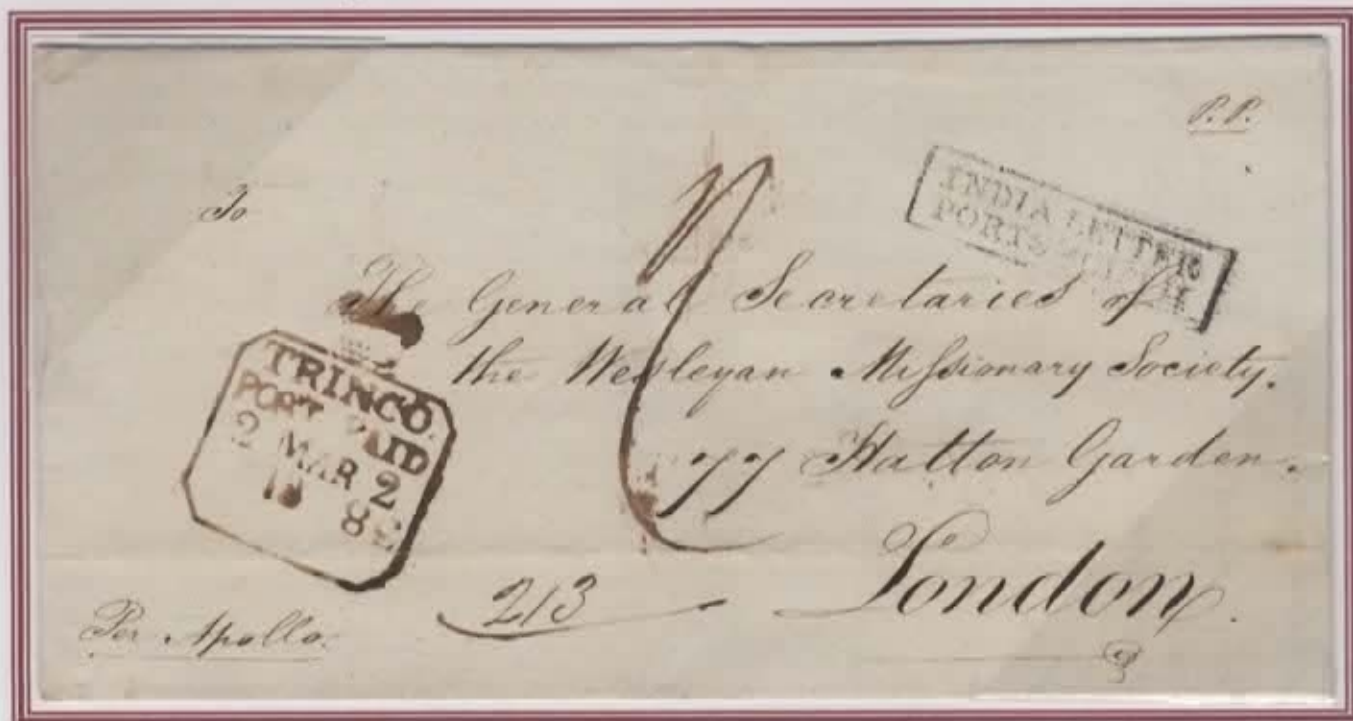 P. P.
To
INDIA LETTER
PORTSMOUTH
The General Secretaries of
the Wesleyan Missionary Society.
77 Hatton Garden.
London.
TRINCO.
POST PAID
2 MAR 2
18
2/3
Per Apollo.